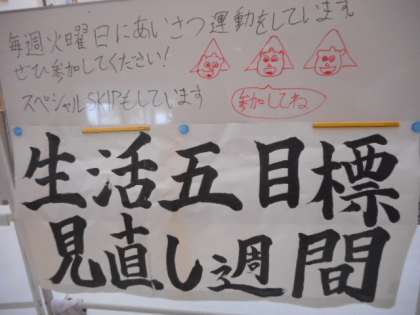 毎週火曜日にあいさつ運動をしています。
ぜひ参加してください!
スペシャルSKIPもしています
参加してね
生活五目標
見直し週間